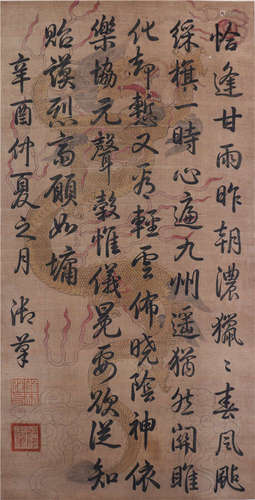 恰逢甘雨昨朝濃獵〻春風颭
綵旗一時心遍九州遙猶然關雎
化却慙又看輕雲佈曉陰神依
樂協元聲殸惟儀晃要欲從知
貽謨烈高願如墉
辛酉仲夏之月 御筆